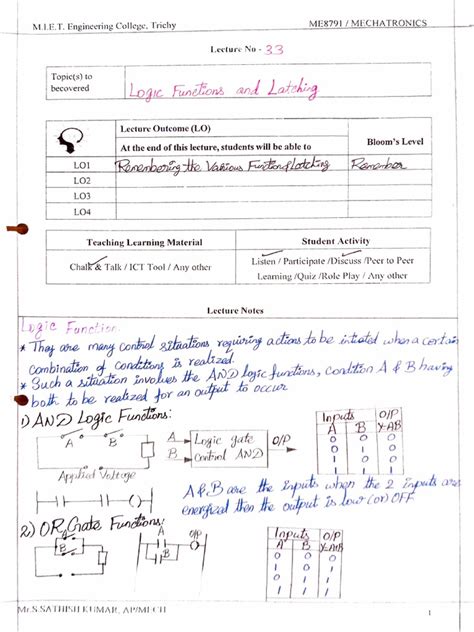 M.I.E.T. Engineering College, Trichy
ME8791 / MECHATRONICS
Lecture No - 33
Topic(s) to
becovered
Logic Functions and Latching
Lecture Outcome (LO)
At the end of this lecture, students will be able to
Bloom's Level
LO1
Remembering the Various Function of Latching
Remember
LO2
LO3
LO4
Teaching Learning Material
Student Activity
Chalk & Talk / ICT Tool / Any other
Listen / Participate /Discuss /Peer to Peer
Learning /Quiz /Role Play / Any other
Lecture Notes
Logic Function:
* They are many control situations requiring actions to be initiated when a certain
combination of conditions is realized.
* Such a situation involves the AND logic functions, condition A & B having
both to be realized for an output to occur
1) AND Logic Functions:
A B
Applied Voltage
A
B
Logic gate
Control AND
O/P
Inputs O/P
A B Y=AB
0 0 0
0 1 0
1 0 0
1 1 1
A&B are the inputs when the 2 inputs are
energised then the output is low (or) OFF
2) OR Gate Functions:
A
B
A
B
O/P
Inputs O/P
A B
0 0 0
0 1 1
1 0 1
1 1 1
Mr.S.SATHISH KUMAR, AP/MECH
1